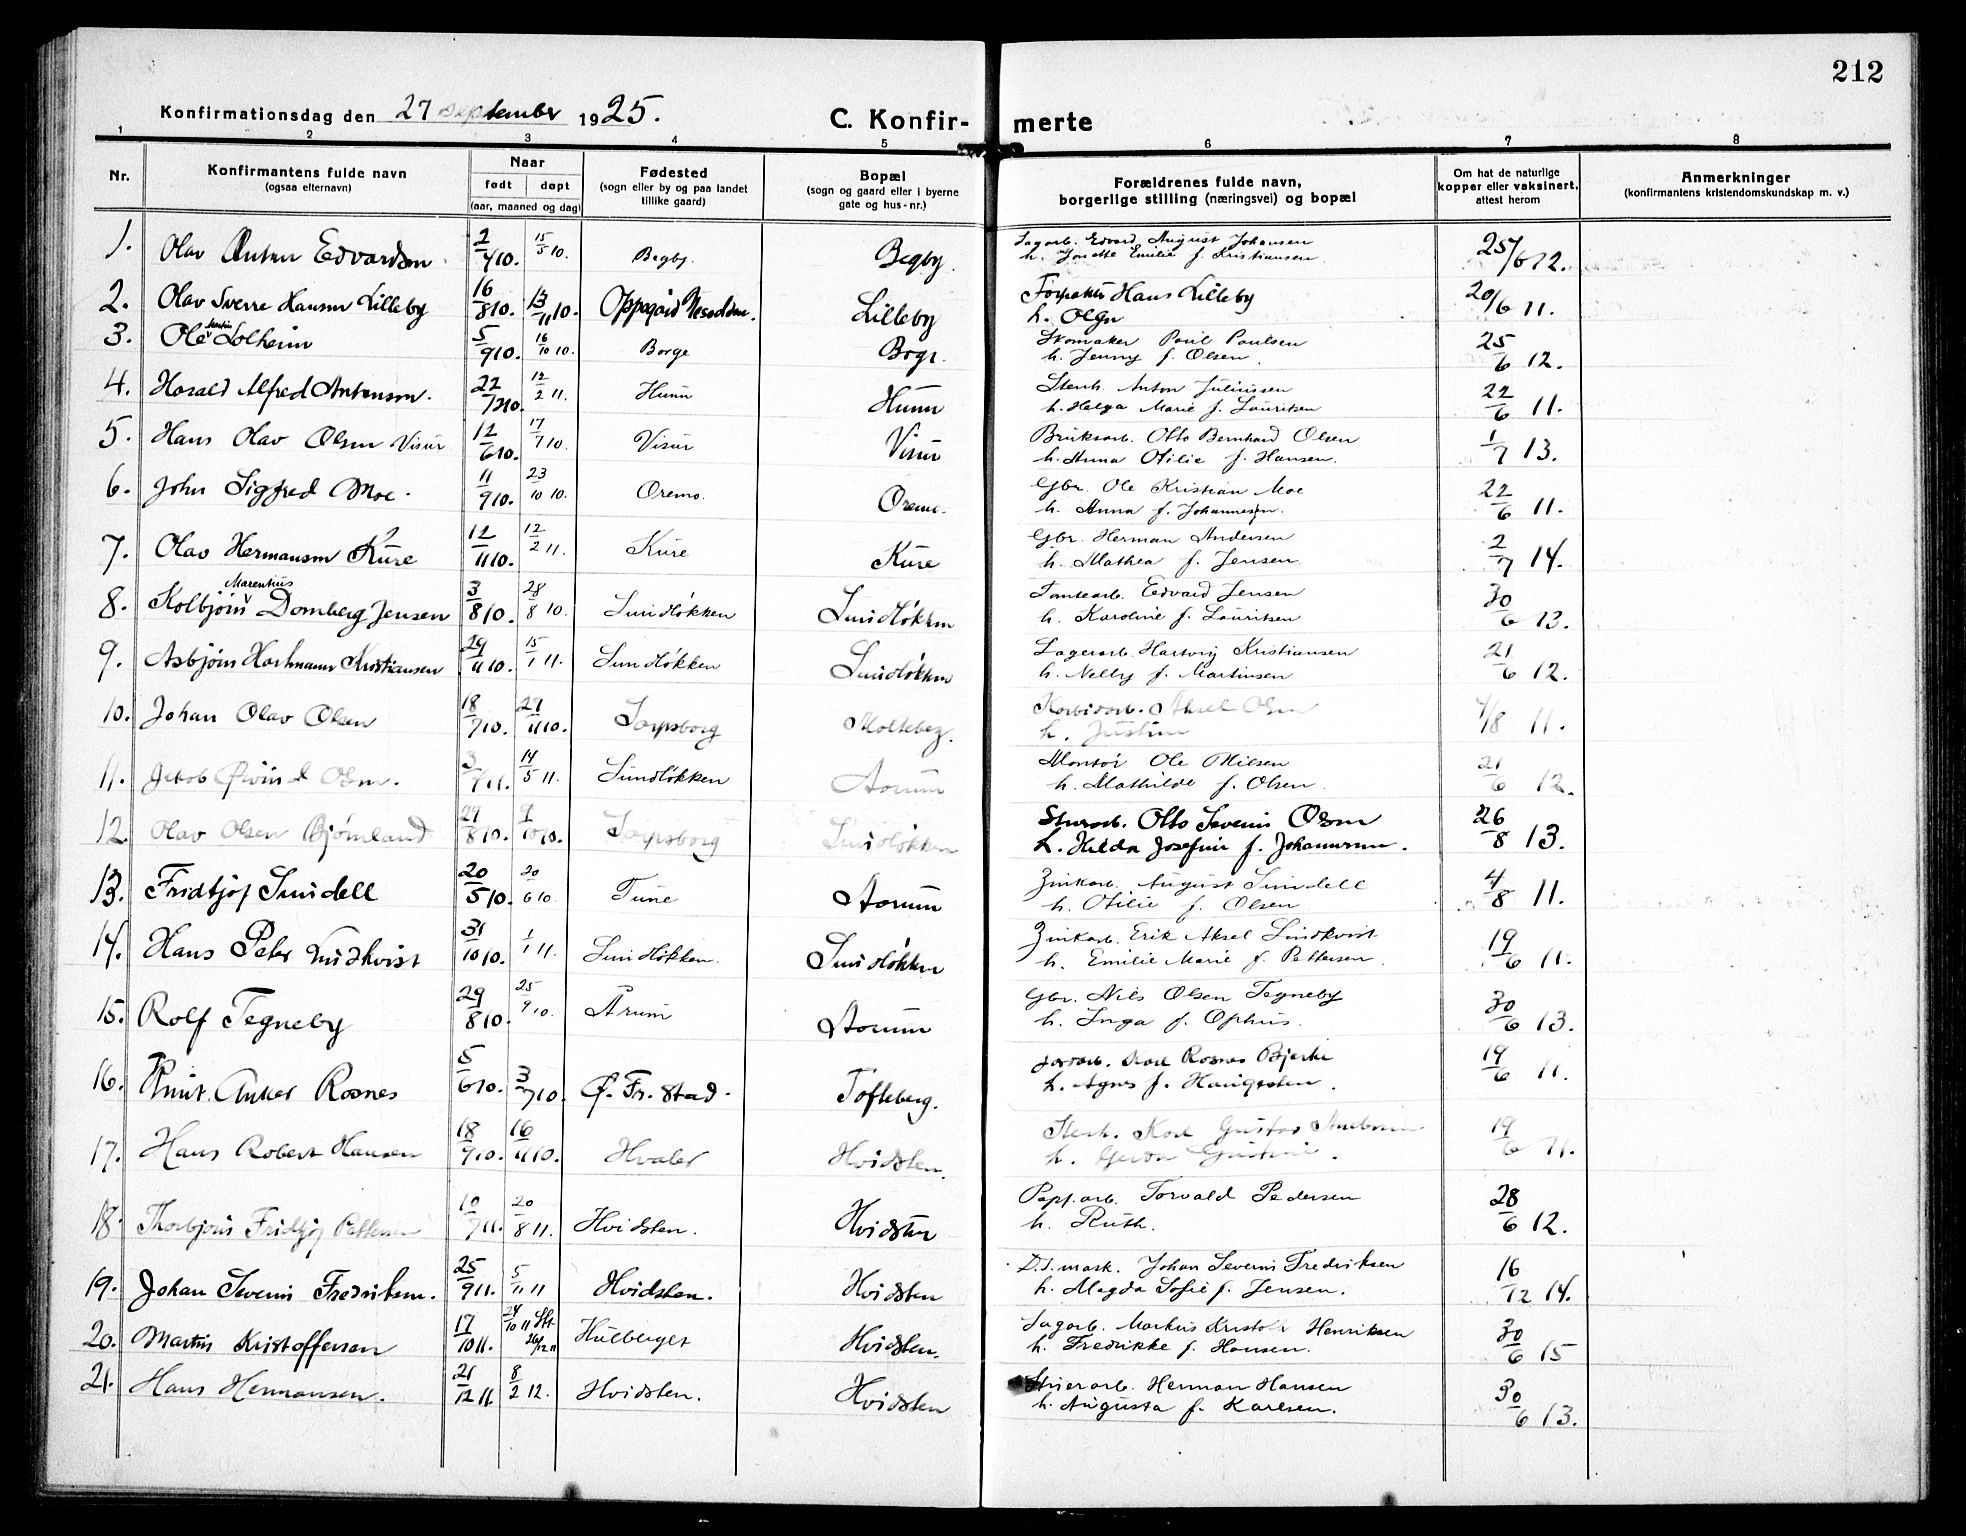 212
Konfirmationsdag den 27 september 1925.
C. Konfir- merte
1 2 3 4 5 6 7 8
Nr.
Konfirmantens fulde navn
(ogsaa efternavn)
Naar
født døpt
(aar, maaned og dag)
Fødested
(sogn eller by og paa landet
tillike gaard)
Bopæl
(sogn og gaard eller i byerne
gate og hus-nr.)
Forældrenes fulde navn,
borgerlige stilling (næringsvei) og bopæl
Om hat de naturlige
kopper eller vaksinert,
attest herom
Anmerkninger
(konfirmantens kristendomskundskap m. v.)
1. Olav Anton Edvardsen 2/7 10. 15/5 10. Begby. Begby. Sagarb. Edvard August Johansen 25/6 12.
h. Josette Emilie f. Kristiansen
2. Olav Sverre Hansen Lilleby 16/8 10. 13/11 10. Oppegård Nesodden. Lilleby Forpakter Hans Lilleby 20/6 11.
h. Olga
3. Ole Martin Solheim 5/9 10. 16/10 10. Borge Borge Skomaker Paul Paulsen 25/6 12.
h. Jenny f. Olsen.
4. Harald Alfred Antonsen. 22/7 10. 12/2 11. Hunn Hunn Stenh. Anton Juliussen 22/6 11.
h. Helga Marie f. Lauritsen
5. Hans Olav Olsen Visur 12/6 10. 17/7 10. Visur Visur Bruksarb. Otto Bernhard Olsen 1/7 13.
h. Anna Otilie f. Hansen.
6. John Sigfred Moe. 11/9 10. 23/10 10. Oremo. Oremo. Gbr. Ole Kristian Moe 22/6 11.
h. Anna f. Johannesen.
7. Olav Hermansen Kure 12/11 10. 12/2 11. Kure Kure Gbr. Herman Andersen 2/7 14.
h. Mathea f. Jensen
8. Kolbjørn Marentius Domberg Jensen 3/8 10. 28/8 10. Sundløkken Sundløkken Tomtearb. Edvard Jensen 30/6 13.
h. Karoline f. Lauritsen
9. Asbjørn Hartmann Kristiansen 29/11 10. 15/1 11. Sundløkken Sundløkken Lagerarb. Hartvig Kristiansen 21/6 12.
h. Nelly f. Martinsen
10. Johan Olav Olsen 18/7 10. 27/11 10. Sarpsborg Molteberg. Karbidarb. Aksel Olsen 4/8 11.
h. Justine
11. Jakob Øivind Olsen. 3/4 11. 14/5 11. Sundløkken Aorum Montør Ole Nilsen 21/6 12.
h. Mathilde f. Olsen.
12. Olav Olsen Bjørnland 29/8 10. 9/10 10. Sarpsborg Sundløkken Stuerarb. Otto Severin Olsen 26/8 13.
h. Hilda Josefine f. Johannessen.
13. Fridtjof Sundell 20/5 10. 20/6 10. Tune Aorum Zinkarb. August Sundell 4/8 11.
h. Otilie f. Olsen
14. Hans Peter Lindkvist 31/10 10. 1/1 11. Sundløkken. Sundløkken Zinkarb. Erik Aksel Lindkvist 19/6 11.
h. Emilie Marie f. Pettersen.
15. Rolf Tegneby 29/8 10. 25/9 10. Årum Aorum Gbr. Nils Olsen Tegneby 30/6 13.
h. Inga f. Ophus.
16. Knut Anker Rosnes 5/6 10. 3/7 10. Ø. Fr. stad. Tofteberg. Jordarb. Karl Rosnes Bjerke 19/6 11.
h. Agnes f. Haugesten.
17. Hans Robert Hansen 18/9 10. 16/11 10. Hvaler Hvidsten. Stenh. Karl Gustav Andersen 19/6 11.
h. Gerda Gustine.
18. Thorbjørn Fridtjof Pettersen 10/7 11. 20/8 11. Hvidsten. Hvidsten Papf.arb. Torvald Pedersen 28/6 12.
h. Ruth.
19. Johan Severin Fredriksen. 25/9 11. 5/11 11 Hvidsten. Hvidsten D.S. mask. Johan Severin Fredriksen 16/12 14.
h. Magda Sofie f. Jensen.
20. Martin Kristoffersen 17/10 11. 24/10 11 Stf. 26/12 11 Hulberget Hvidsten. Sagarb. Markus Kristof Henriksen 30/6 15
h. Fredrikke f. Hansen.
21. Hans Hermansen. 21/12 11. 8/2 12. Hvidsten. Hvidsten Stuerarb. Herman Hansen 30/6 13.
h. Augusta f. Karlsen.